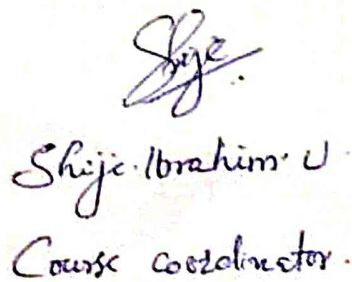 Shije
Shije. Ibrahim. U
Course coordinator.